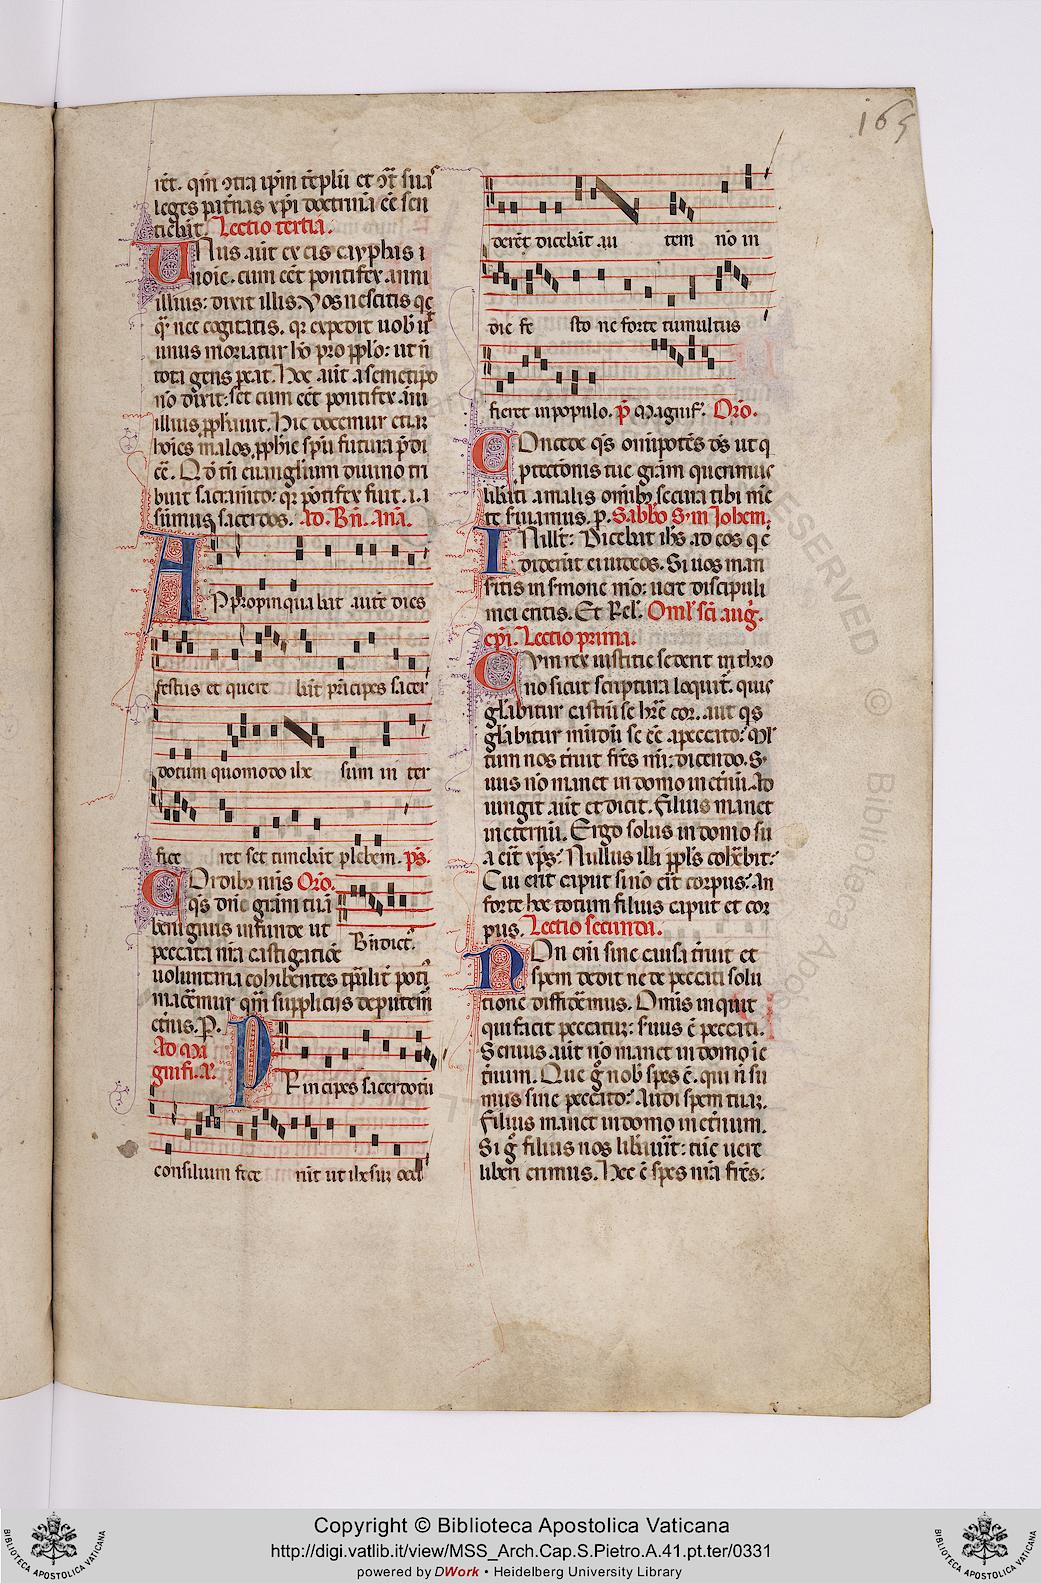 165
ret. qm̄ ꝯtra ip̄m tēplū et ꝯt̄ suas
leges pat̄nas xp̄i doctrinā eē sen
tiebāt. Lectio tertia.
Unus aūt ex eis cayphas i
noīe. cum eēt pontifex anni
illius: dixit illis. Vos nescitis qͥc
q̄ nec cogitatis. qꝛ expedit uob̄ ut
unus moriatur hō pro pp̄lo: ut n̄
tota gens pereat. Hoc aūt a semetipo
nō dixit: set cum eēt pontifex āni
illius, pp̄hauit. Hic docemur etiaꝫ
hoīes malos, pp̄hīe spū futura p̄di
cē. Qd̄ tn̄ euangl̄ium diuino tri
buit sacramto: qꝛ pōtifex fuit. i.
summus sacerdos. Ad. Bn̄. Anā.
Appropinquabat autē dies
festus et quere bāt p̄ncipes sacer
dotum quomodo ihe sum in ter
fice rēt set timebāt plebem. ps.
Cordibꝫ nr̄is Orō.
qs̄ dn̄e gr̄am tuā
benignus infunde ut Bn̄dict̄.
peccata nr̄a castigatiōe
uoluntaria cohibentes tp̄alit̄ poti
macēmur qm̄ suppliciis deputem̄
et̄nis. P.
Ad ma
gnifi. a.
Principes sacerdotū
consilium fece rūt ut ihesuꝫ occi
derēt dicebāt au tem nō in
die fe sto ne forte tumultus
fieret in populo. p̄ Magnif̄. Orō.
Concede qs̄ om̄ipotēs ds̄ ut q
ptectōnis tue gr̄am querimus
libāti a malis om̄ibꝫ secura tibi mē
te s̄uiamus. p. Sabbō S. in Iohem.
In illt̄: Dicebat ihs̄ ad eos q c̄
diderūt ei iudeos. Si uos man
s̄itis in s̄mone meo: uere discipuli
mei eritis. Et Rel̄. Oml̄ sc̄i aug̃.
epi. Lectio prima.
Cum rex iustitie sederit in thro
no sicut scriptura loquit̄. quis
gl̄abitur castū se hr̄e cor. aut qs
gl̄abitur mūdū se eē a peccato? Ml̄
tum nos t̄ruit fr̄es mī: dicendo. S̄
uus nō manet in domo in et̄nū. Ad
iungit aūt et dicit. Filius manet
in eternū. Ergo solus in domo su
a erit xp̄s? Nullus illi ppl̄s cohēbit?
Cui erit caput si nō erit corpus? An
forte hoc totum filius caput et cor
pus. Lectio secunda.
Non eni sine causa t̄ruit et
spem dedit ne de peccati solu
tione diffidēmus. Omīs inquit
qui facit peccatuꝫ: s̄uus ē peccati.
Seruus aūt nō manet in domo ie
t̄num. Que g̊ nob̄ spes ē. qui n̄ su
mus sine peccato? Audi spem tuaꝫ.
Filius manet in domo in et̄num.
Si g̊ filius nos lib̄auit: tūc uere
liberi erimus. Hec ē spes nr̄a fr̄es.
Copyright © Biblioteca Apostolica Vaticana
http://digi.vatlib.it/view/MSS_Arch.Cap.S.Pietro.A.41.pt.ter/0331
powered by DWork • Heidelberg University Library
BIBLIOTECA APOSTOLICA VATICANA
BIBLIOTECA APOSTOLICA VATICANA